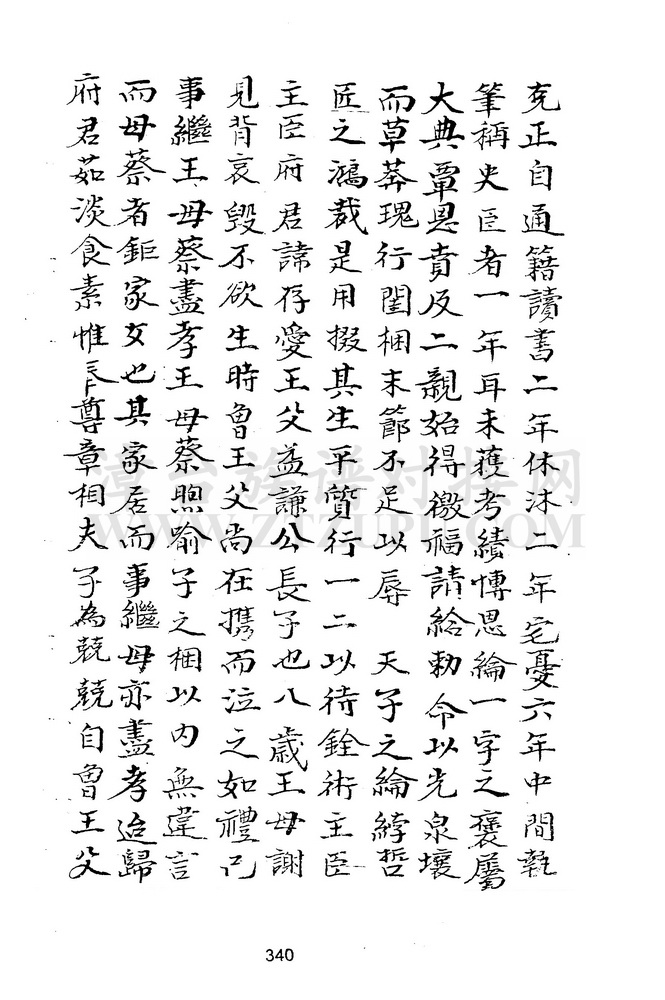 克正自通籍讀書二年休沐二年宅憂六年中間執
筆稱史臣者一年耳未獲考績愽恩綸一字之褒屬
大典覃恩賁及二親始得徼福請給勅命以光泉壤
而草莽瑰行閨梱末節不足以辱 天子之綸綍哲
匠之鴻裁是用掇其生平質行一二以待銓術主臣
主臣府君諱存愛王父益謙公長子也八歲王母謝
見背哀毀不欲生時魯王父尚在携而泣之如禮已
事繼王母蔡盡孝王母蔡煦喻子之梱以內無違言
而母蔡者鉅家女也其家居而事繼母亦盡孝迨歸
府君茹淡食素惟尊章相夫子為兢兢自魯王父
340
漳台族谱对接网
WWW.ZTZUPU.COM